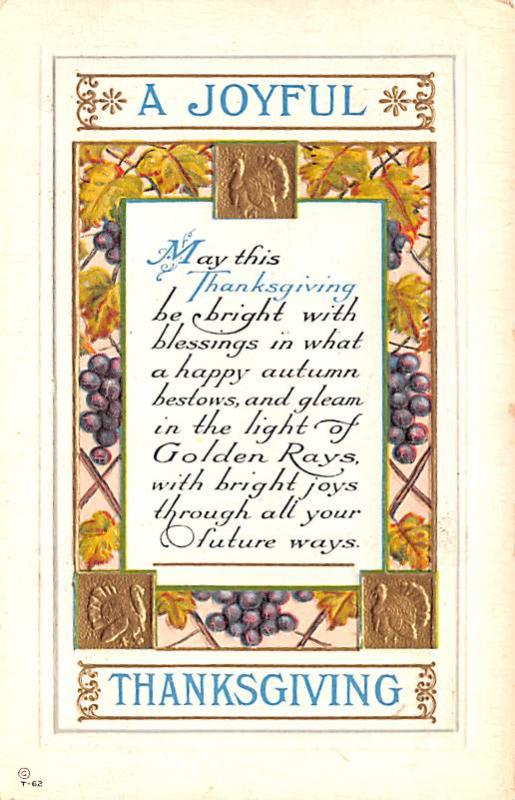 A JOYFUL
May this
Thanksgiving
be bright with
blessings in what
a happy autumn
bestows, and gleam
in the light of
Golden Rays,
with bright joys
through all your
future ways.
THANKSGIVING
©
T-62